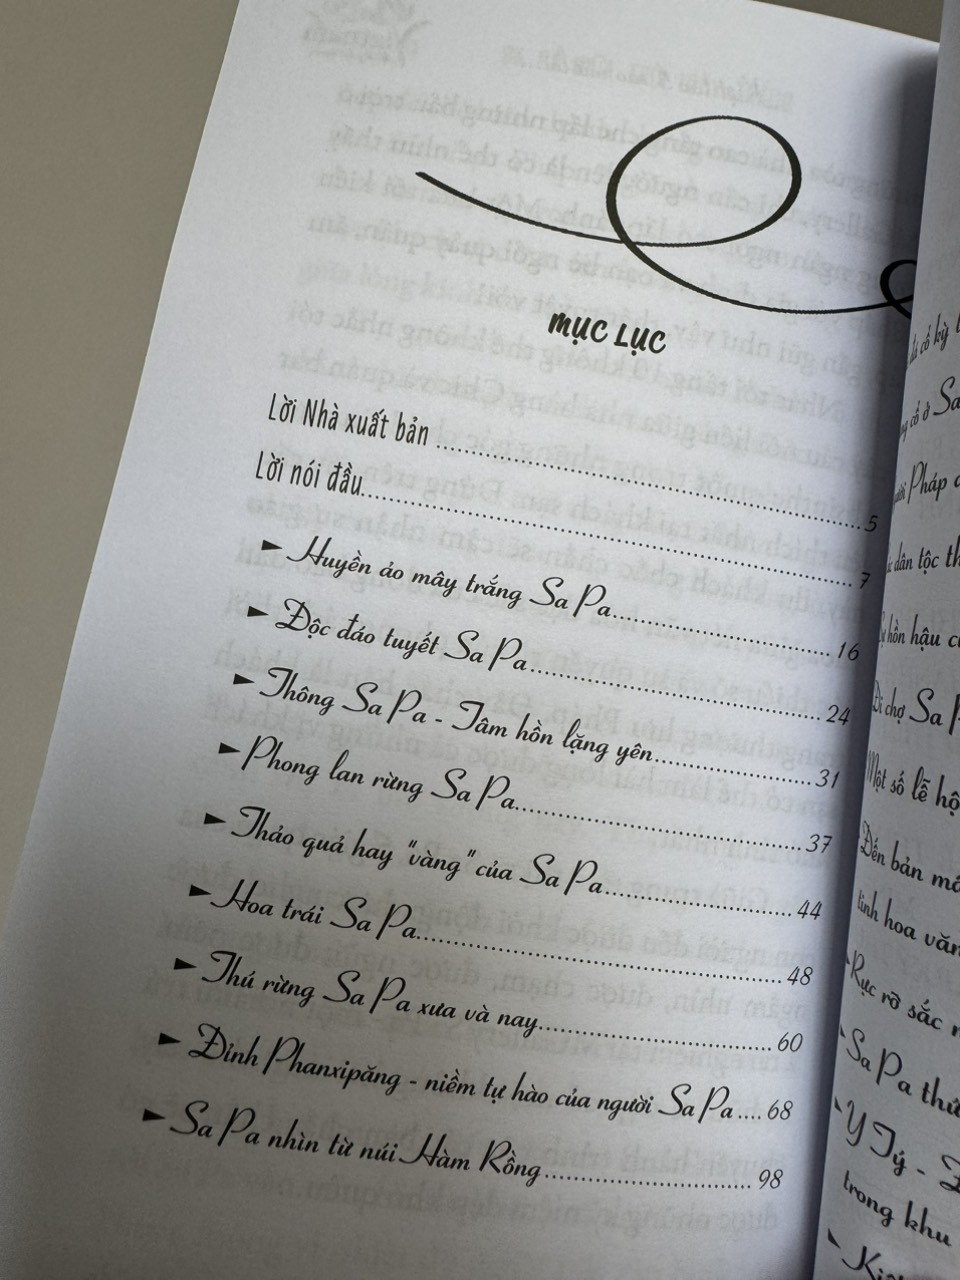 MỤC LỤC
Lời Nhà xuất bản ........ 5
Lời nói đầu........ 7
► Huyền ảo mây trắng Sa Pa........ 16
► Độc đáo tuyết Sa Pa........ 24
► Thông Sa Pa - Tâm hồn lặng yên........ 31
► Phong lan rừng Sa Pa........ 37
► Thảo quả hay "vàng" của Sa Pa........ 44
► Hoa trái Sa Pa........ 48
► Thú rừng Sa Pa xưa và nay........ 60
► Đỉnh Phanxipăng - niềm tự hào của người Sa Pa .... 68
► Sa Pa nhìn từ núi Hàm Rồng........ 98
đá cổ kỳ
cổ ở Sa
Pháp
dân tộc
hồn hậu
Đi chợ Sa
Một số lễ hộ
Đến bản
tinh hoa văn
Rực rỡ sắc
Sa Pa
Y Tý -
trong khu